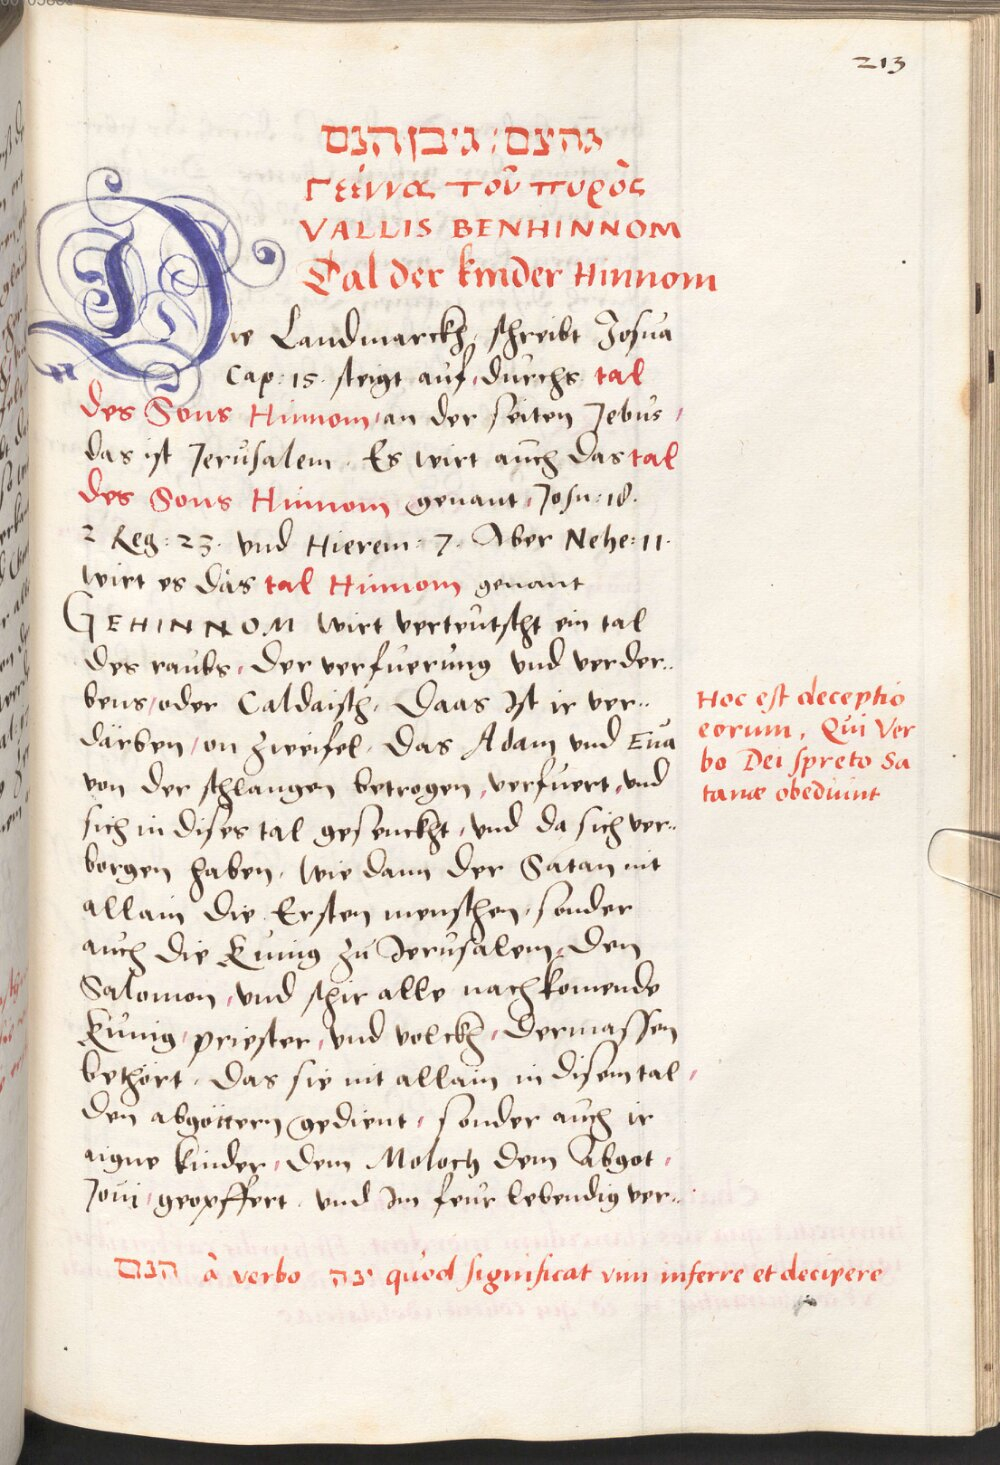 213
גהינם : גי בן הנם
Γεέννα τοῦ πυρὸς
VALLIS BENHINNOM
Tal der kinder Hinnom
Die Landmarckh, schreibt Josua
Cap: 15. steigt auf, durchs tal
des Sons Hinnom, an der seiten Jebus,
das ist Jerusalem. Es wirt auch das tal
des Sons Hinnom genant, Josu: 18.
2 Reg: 23. vnd Hierem: 7. Aber Nehe: 11.
wirt es das tal Hinnom genant
GEHINNOM wirt verteutscht ein tal
des raubs, der verfuerung vnd verder..
bens, oder Caldaisch, Daas Ist ir ver..
därben, on zweifel, Das Adam vnd Eua
von der schlangen betrogen, verfuert, vnd
sich in dises tal gesenckht, vnd da sich ver..
borgen haben, wie dann der Satan nit
allain die Ersten menschen, sonder
auch die Kunig zu Jerusalem, Den
Salomon, vnd schir alle nachkomende
Kunig, priester, vnd volckh, Dermassen
bethört, Das sie nit allain in disem tal,
den abgöttern gedient, sonder auch ir
aigne kinder, dem Moloch dem Abgot,
Joui, geopffert, vnd Im feur lebendig ver..
Hoc est deceptio
eorum, Qui Ver
bo Dei spreto Sa
tanæ obediunt
הנם à verbo ינה quod significat vim inferre et decipere